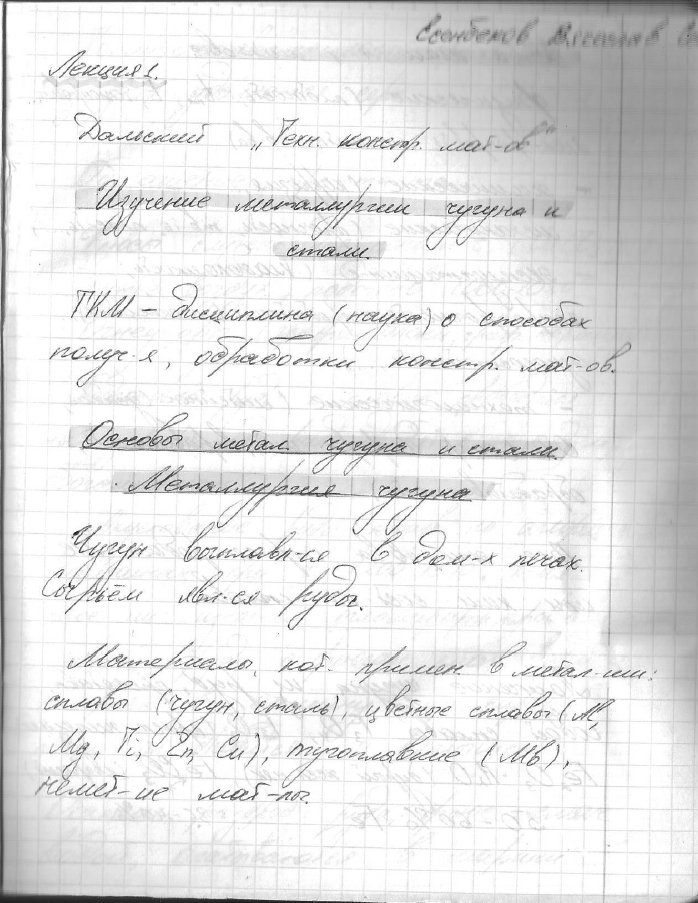 Есенбеков
Лекция 1.
Дальский „Техн. констр. мат-ов"
Изучение металлургии чугуна и
стали.
ТКМ – дисциплина (наука) о способах
получ-я, обработки констр. мат-ов.
Основы метал. чугуна и стали.
Металлургия чугуна
Чугун выплавл-ся в дом-х печах.
Сырьём явл-ся руды.
Материалы, кот. примен. в метал-ии:
сплавы (чугун, сталь), цветные сплавы (Al,
Mg, Ti, Zn, Cu), тугоплавкие (Mb),
немет-ие мат-лы.